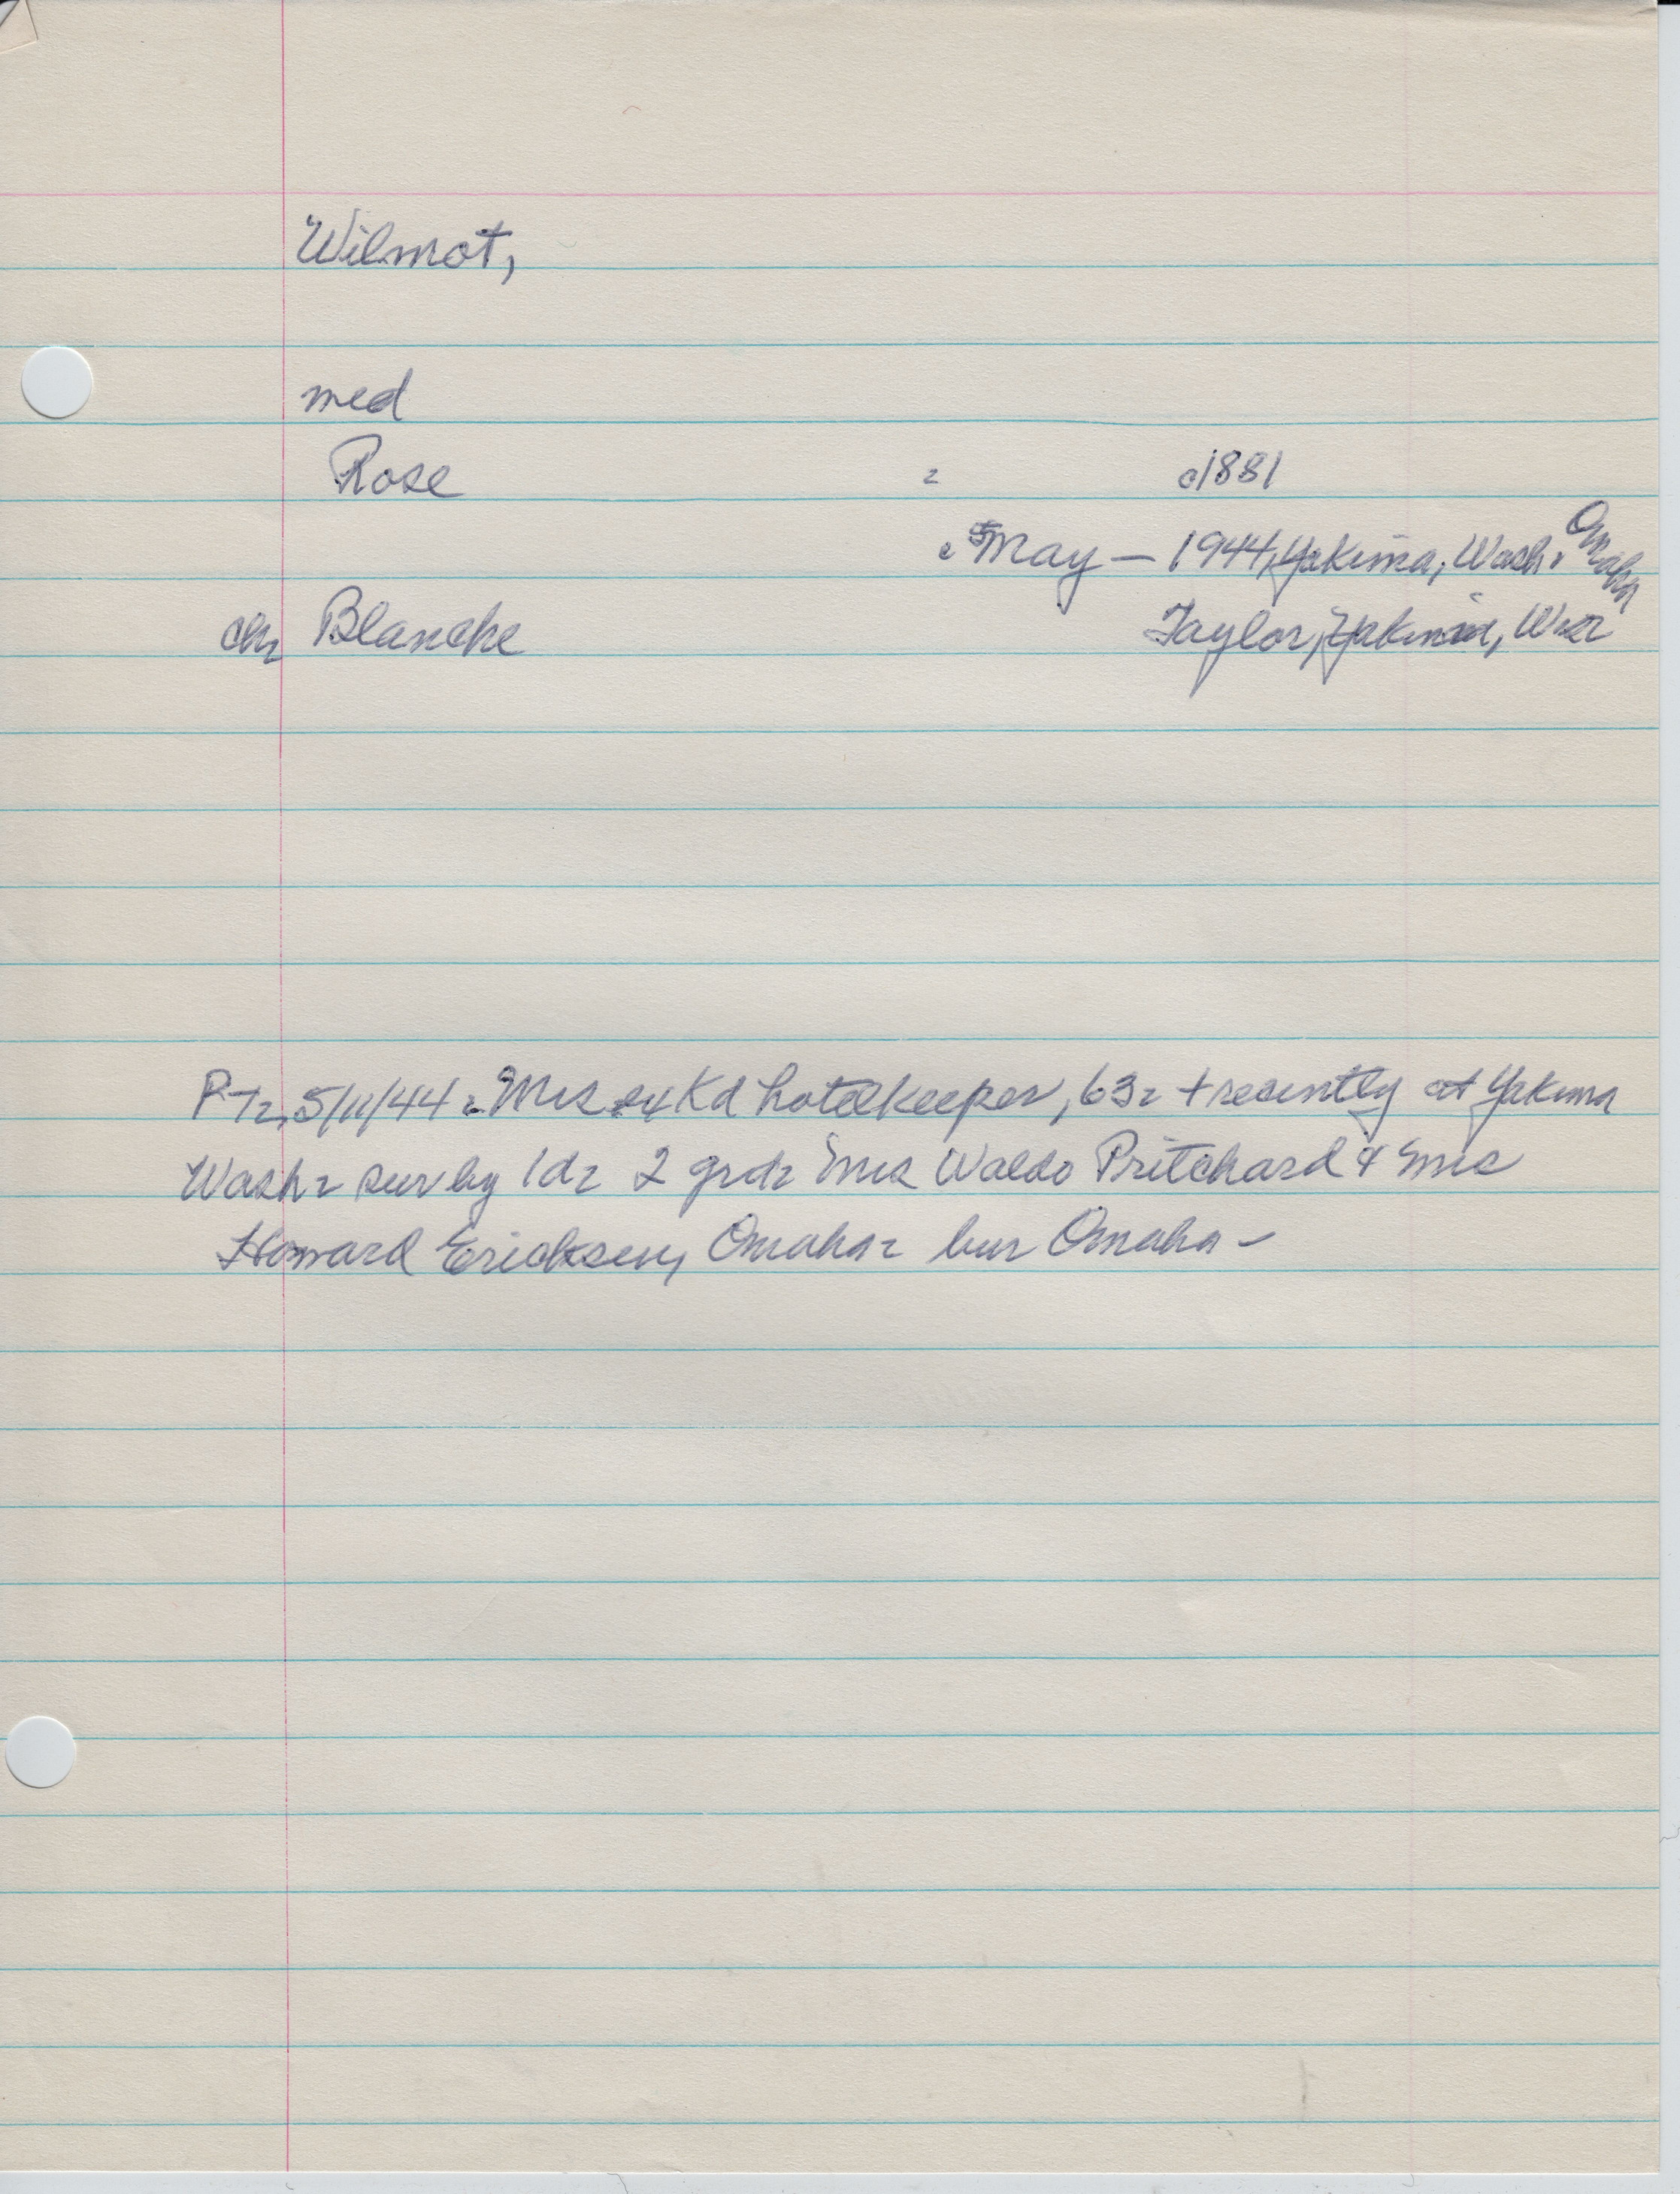 Wilmot,
med
Rose c1881
May — 1944, Yakima, Wash. Omaha
ch Blanche Taylor, Yakima,
5/11/44 Mrs ex Kd hotelkeeper, 63 + recently at Yakima
Wash sur by 1d 2 grd Mrs Waldo Pritchard & Mrs
Howard Ericksen, Omaha bur Omaha —